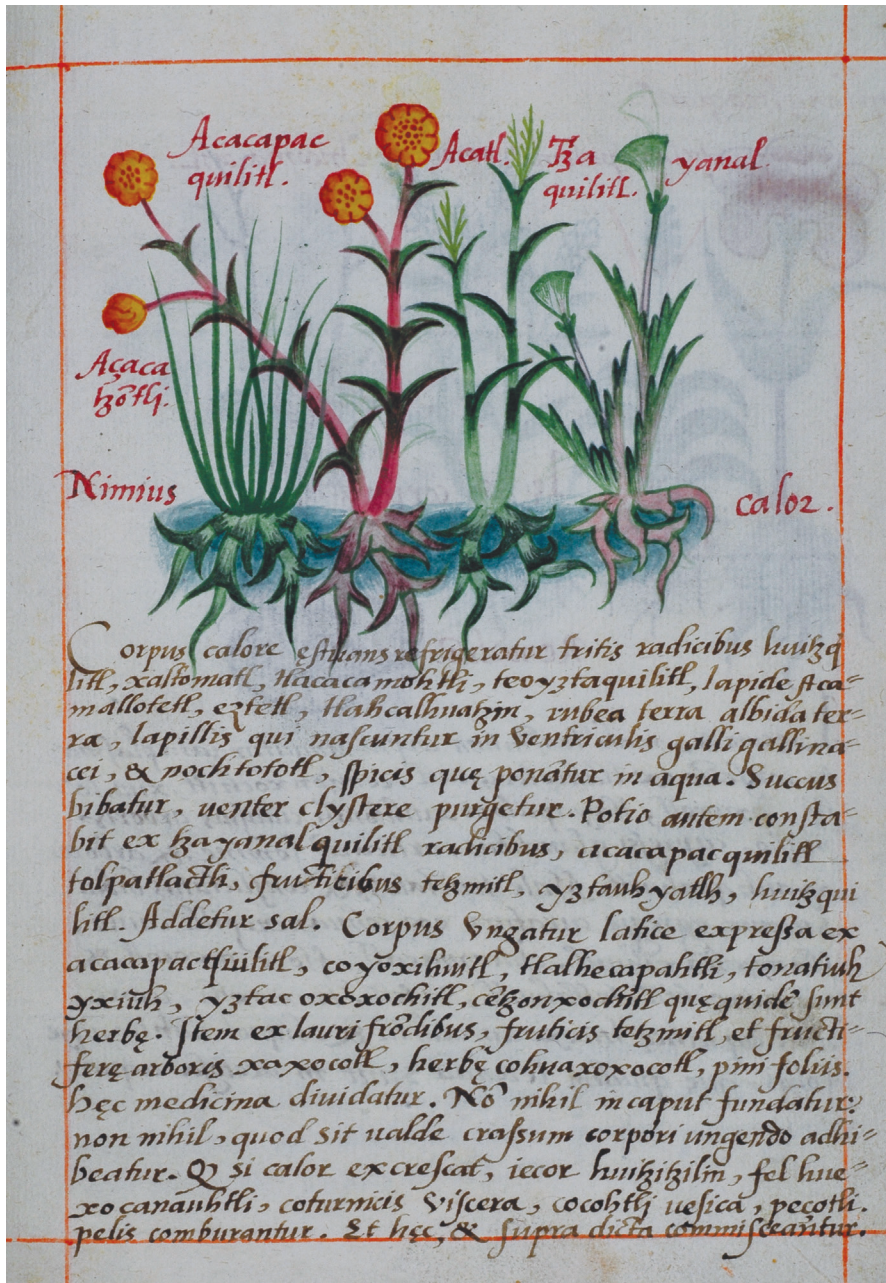 Acacapac
quilitl.
Acatl.
Tza
quilitl.
yanal
Açaca
tzōtli.
Nimius
calor.
Corpus calore ęstuans refrigeratur tritis radicibus huitzq̄
litl, xaltomatl, tlacacamohtli, teoyztaquilitl, lapide
mallotetl, eztetl, tlahcalhuatzin, rubea terra albida ter=
ra, lapillis qui nascuntur in ventriculis galli gallina=
cei, & nochtototl, spicis quę ponātur in aqua. Succus
bibatur, venter clystere purgetur. Potio autem consta=
bit ex tzayanalquilitl radicibus, acacapacquilitl
tolpatlactli, fruticibus tetzmitl, yztauhyattl, huitzqui
litl. Addetur sal. Corpus Vngatur latice expressa ex
coyoxihuitl, tlalhecapahtli, tonatiuh
yxiuh, yztac oxoxochitl, cētzonxochitl quę quidē sunt
herbę. Item ex lauri frōdibus, fruticis tetzmitl, et fructi=
ferę arboris xaxocotl, herbę cohuaxoxocotl, pini foliis.
hęc medicina diuidatur. Nō nihil in caput fundatur:
non nihil, quod sit ualde crassum corpori ungendo adhi=
beatur. Q si calor excrescat, iecor huitzitzilin, fel hue=
xocanauhtli, coturnicis Viscera, cocohtli uesica, peçotli.
pelis comburantur. Et hęc, & supra dicta commisceantur.